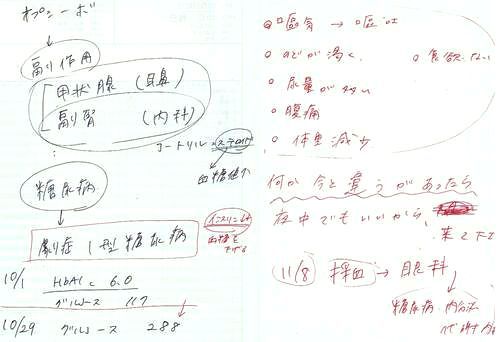 オプジーボ
副作用
甲状腺 (耳鼻)
副腎 (内科)
コートリル=ステロイド
血糖値大
糖尿病
劇症1型糖尿病
インスリン
血糖を
下げる
10/1 HbA1c 6.0
グルコース 117
10/29 グルコース 288
嘔気 → 嘔吐
のどが渇く
食欲ない
尿量が多い
腹痛
体重減少
何か今と違うがあったら
夜中でもいいから
来て下さい
11/8 採血 → 眼科
糖尿病 内分泌
代謝内